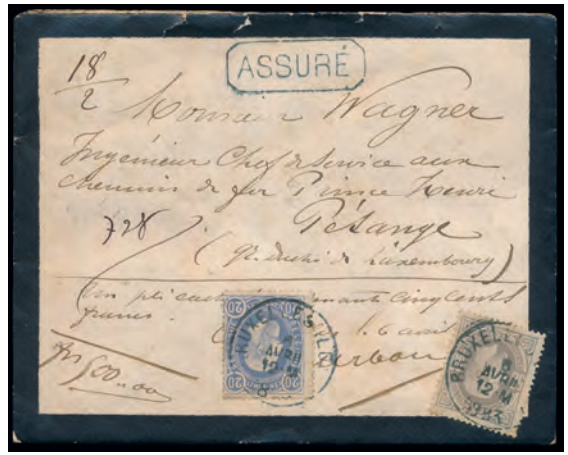 18/2
ASSURÉ
Monsieur Wagner
Ingénieur Chef de Service aux
chemins de fer Prince Henri
Pétange
728
(Gd. duché de Luxembourg)
Un pli cacheté cinq cents
francs.
le 6 avril
frs 500.00
20 20
20 20
BRUXELLES
6
AVRIL
12 M
BRUXELLES
6
AVRIL
12 M
1883